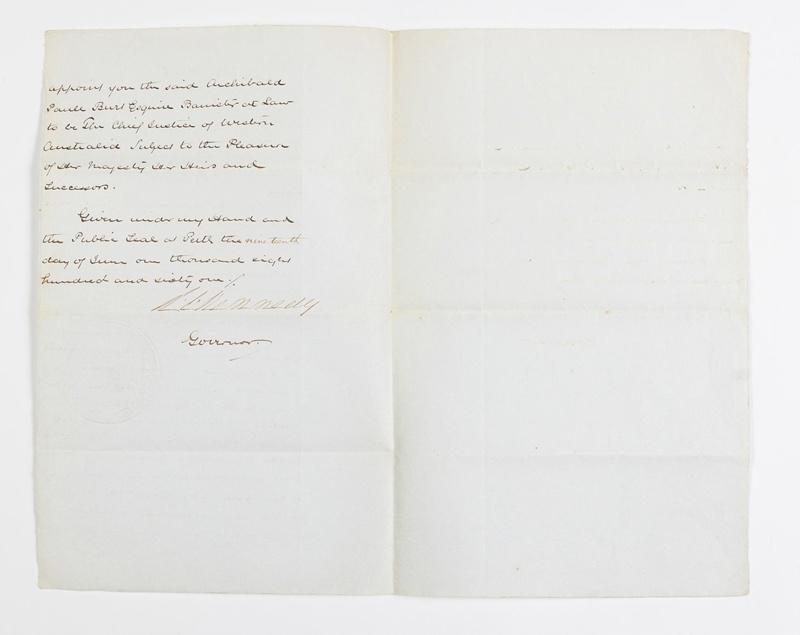 appoint you the said Archibald
Paull Burt Esquire Barrister at Law
to be The Chief Justice of Western
Australia Subject to the Pleasure
of Her Majesty Her Heirs and
Successors.
Given under my Hand and
the Public Seal at Perth this nineteenth
day of June one thousand eight
hundred and sixty one.
A E Kennedy
Governor.